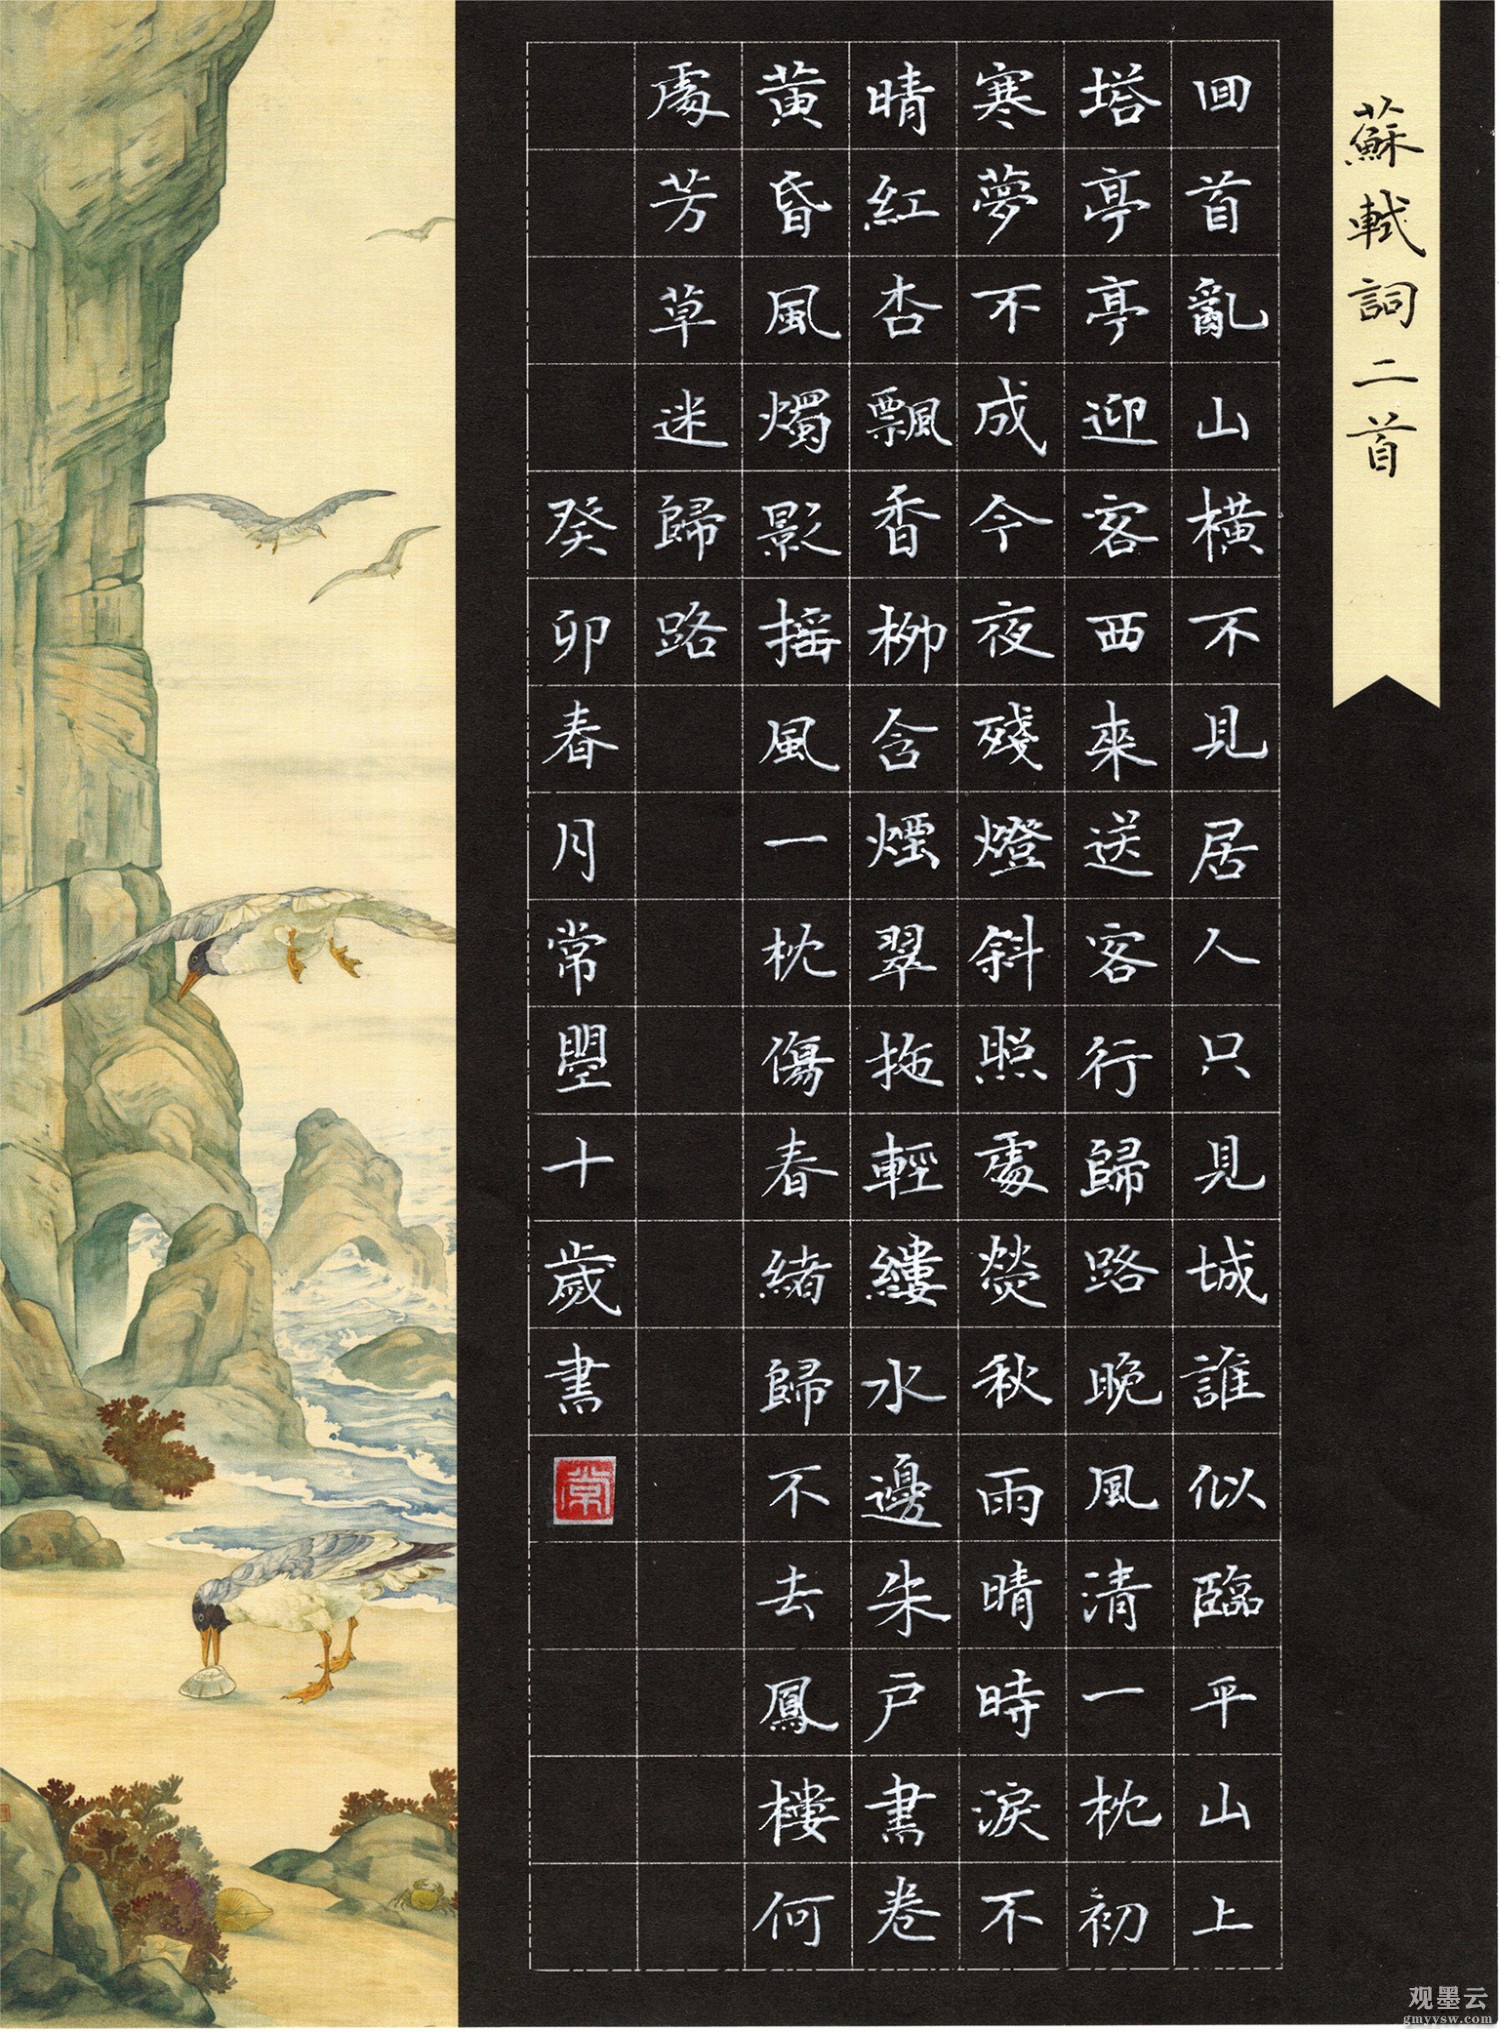 蘇軾詞二首
回首亂山橫不見居人只見城誰似臨平山上
塔亭亭迎客西來送客行歸路晚風清一枕初
寒夢不成今夜殘燈斜照處熒秋雨晴時淚不
晴紅杏飄香柳含煙翠拖輕縷水邊朱戶書卷
黃昏風燭影摇風一枕傷春緒歸不去鳳樓何
處芳草迷歸路
癸卯春月常曌十歲書
常
观墨云
gmyysw.com